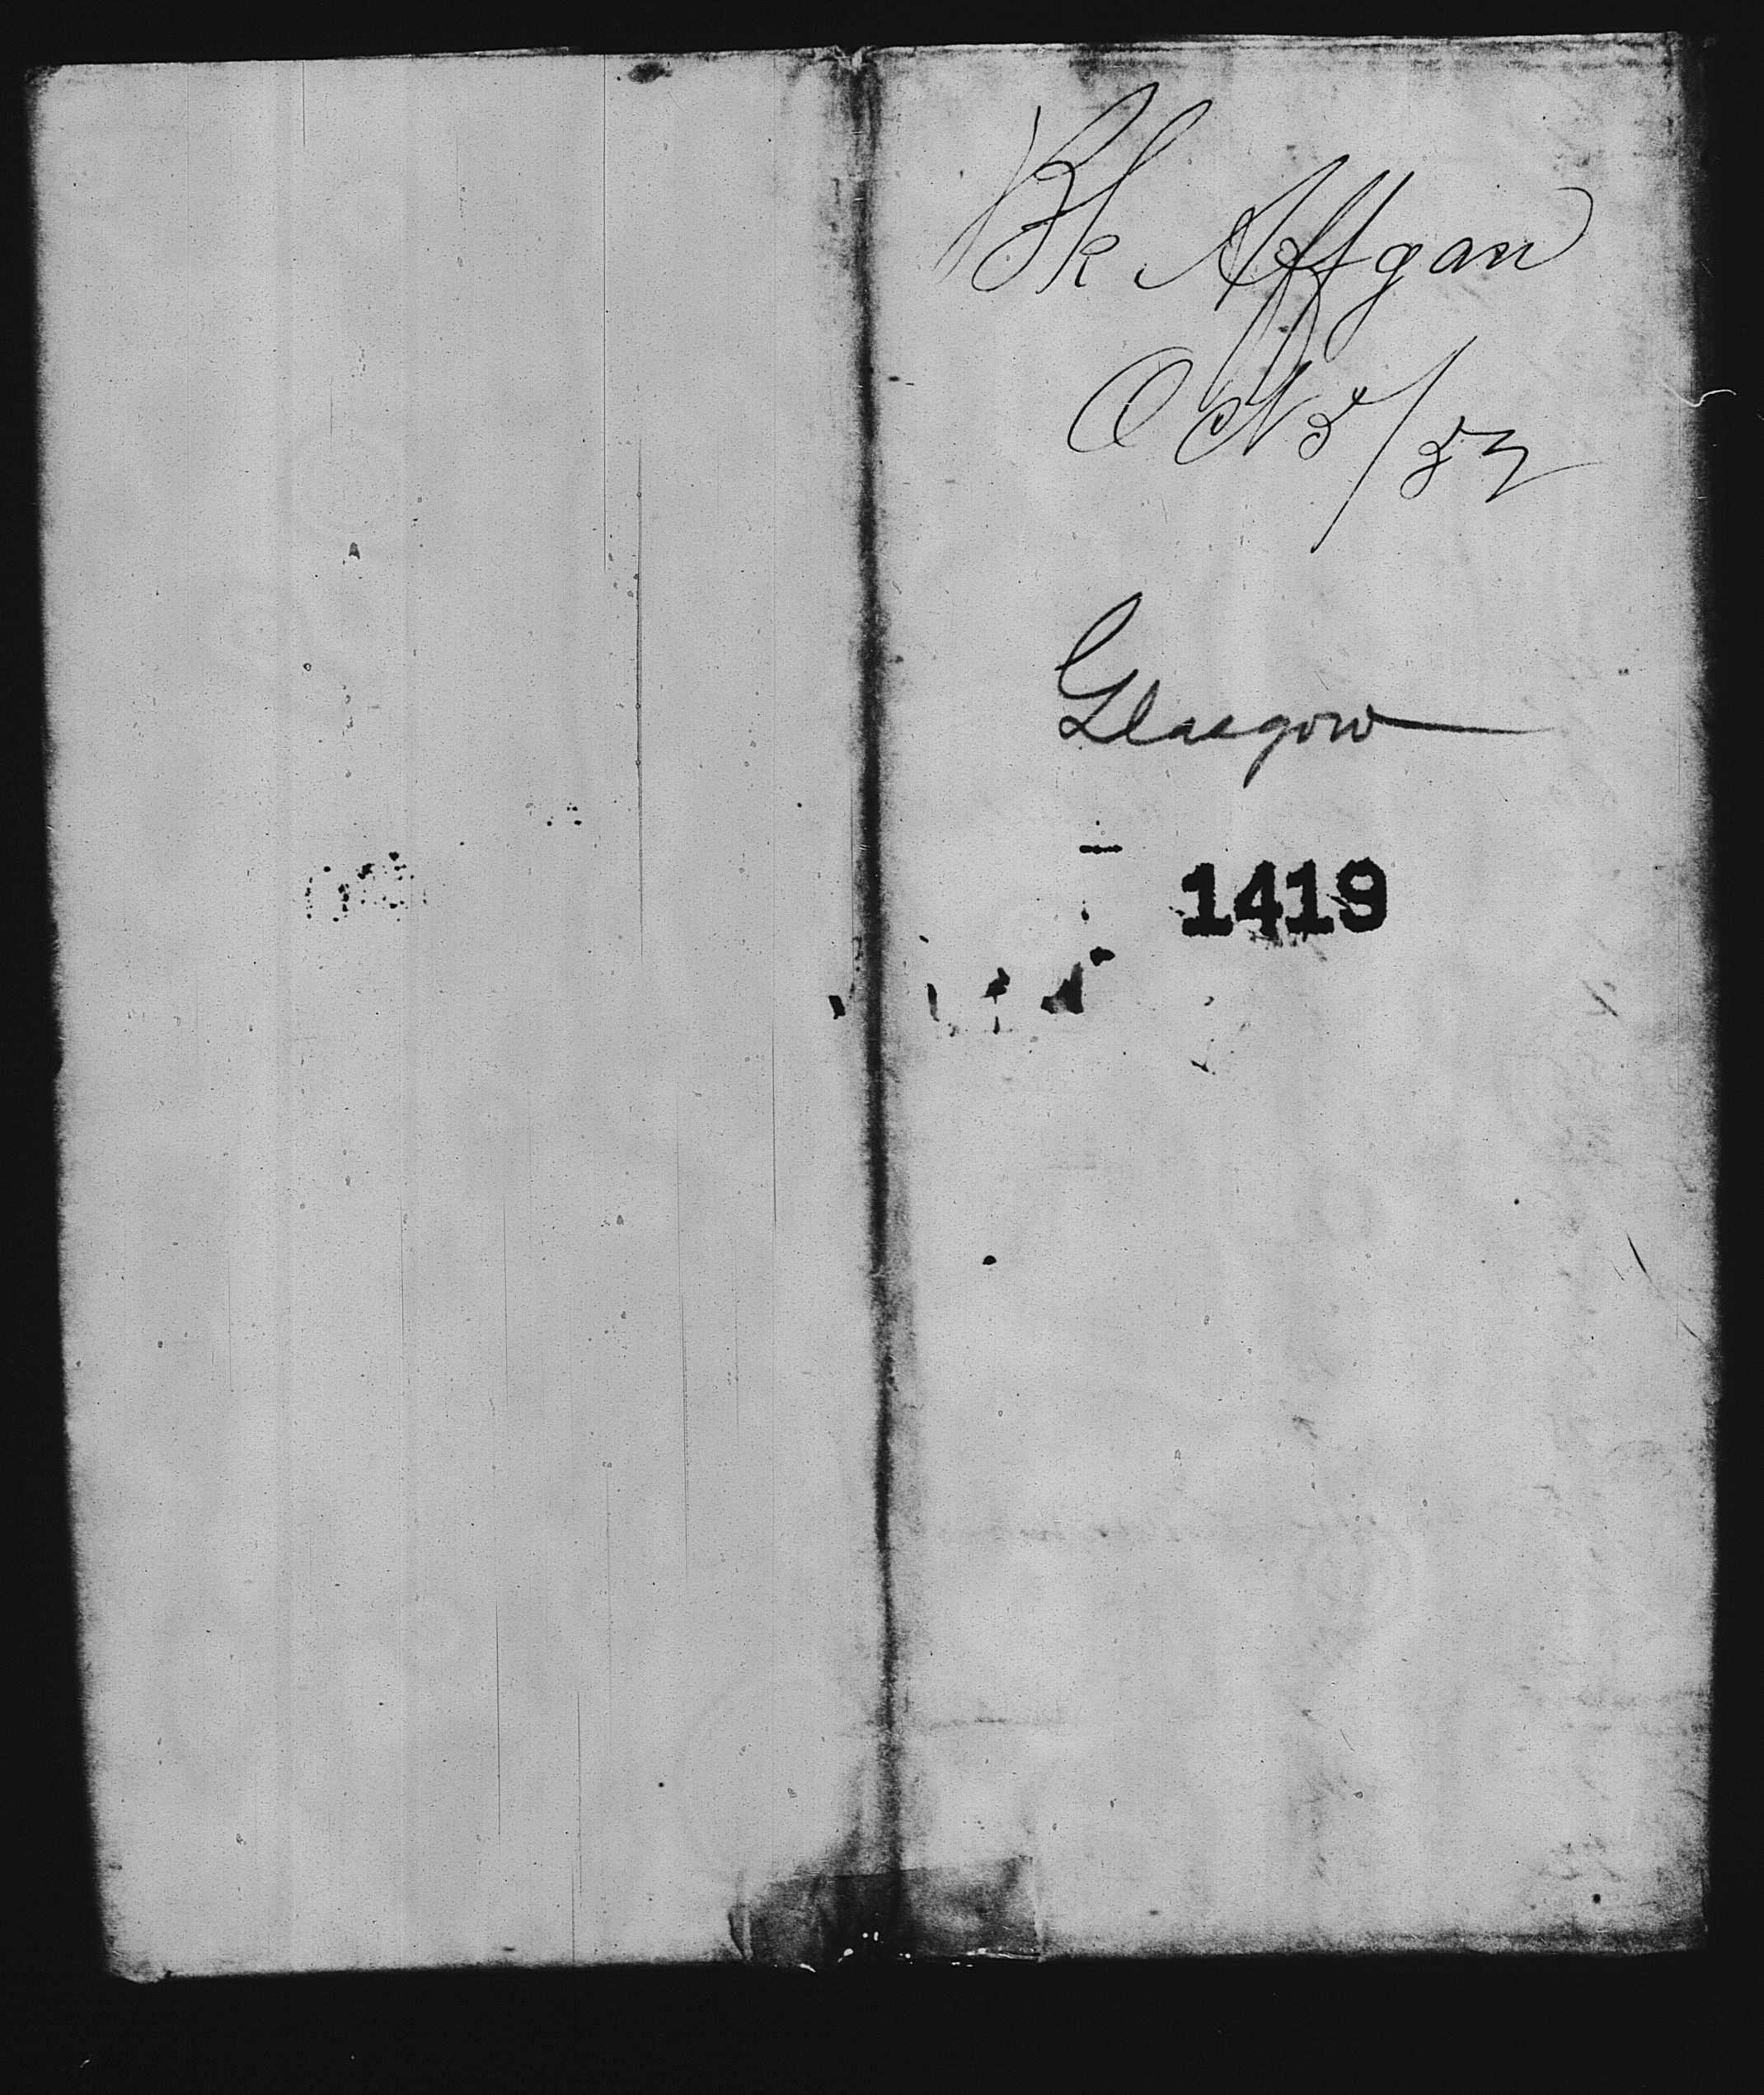 Bk Affgan
Oct 5/52
Glasgow
1419